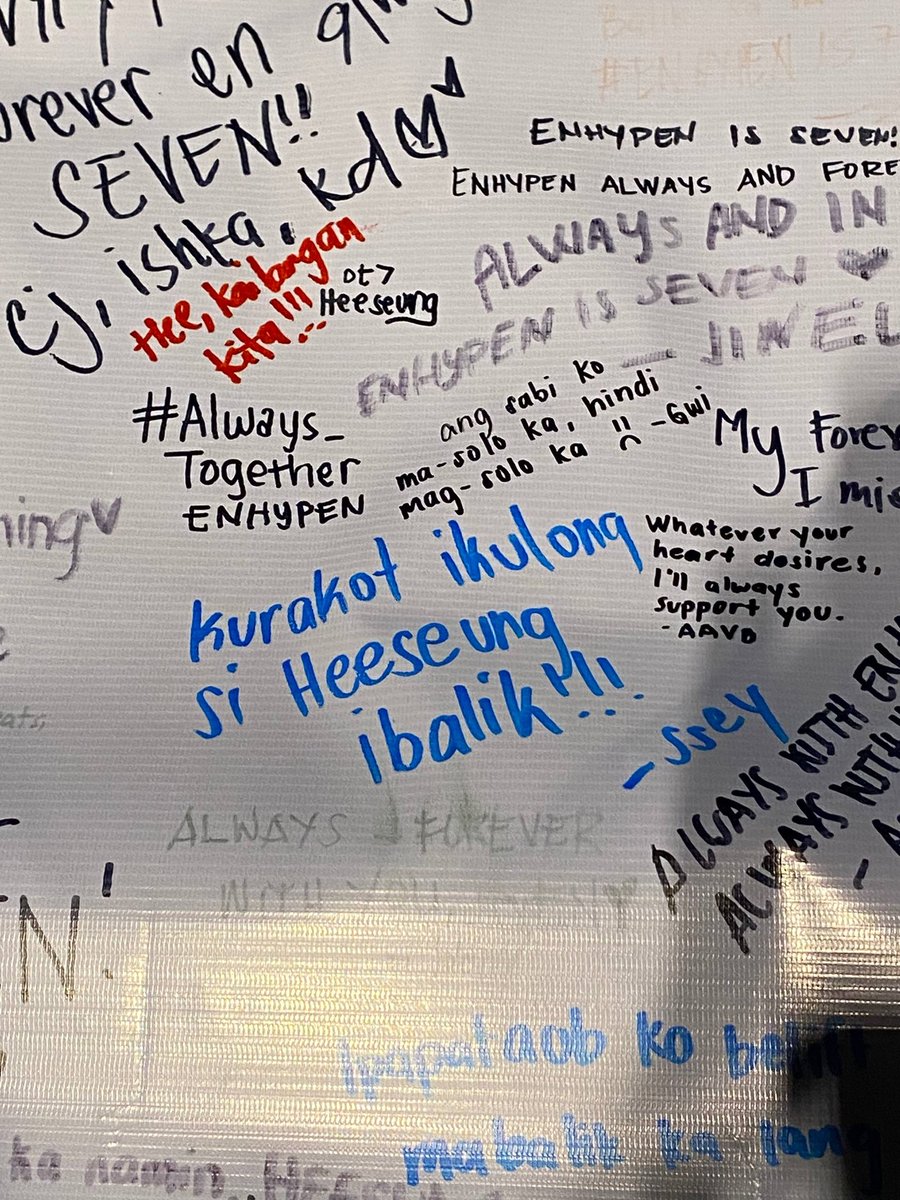 forever en
SEVEN!!
cj, ishka, kd
ENHYPEN IS SEVEN!
ENHYPEN ALWAYS AND FORE
ALWAYS AND IN
ENHYPEN IS SEVEN ♥
JINEL
Hee, kailangan
kita!!!
OT7
Heeseung
#Always_
Together
ENHYPEN
ang sabi ko
ma-solo ka, hindi
mag-solo ka -GWI
My Forev
I mis
Whatever your
heart desires,
I'll always
support you.
-AAVD
kurakot ikulong
si Heeseung
ibalik!!!!
-ssey
ALWAYS WITH EN
ALWAYS WITH
ALWAYS & FOREVER
WITH YOU
Ipapataob ko belift
mabalik ka lang
ka namin